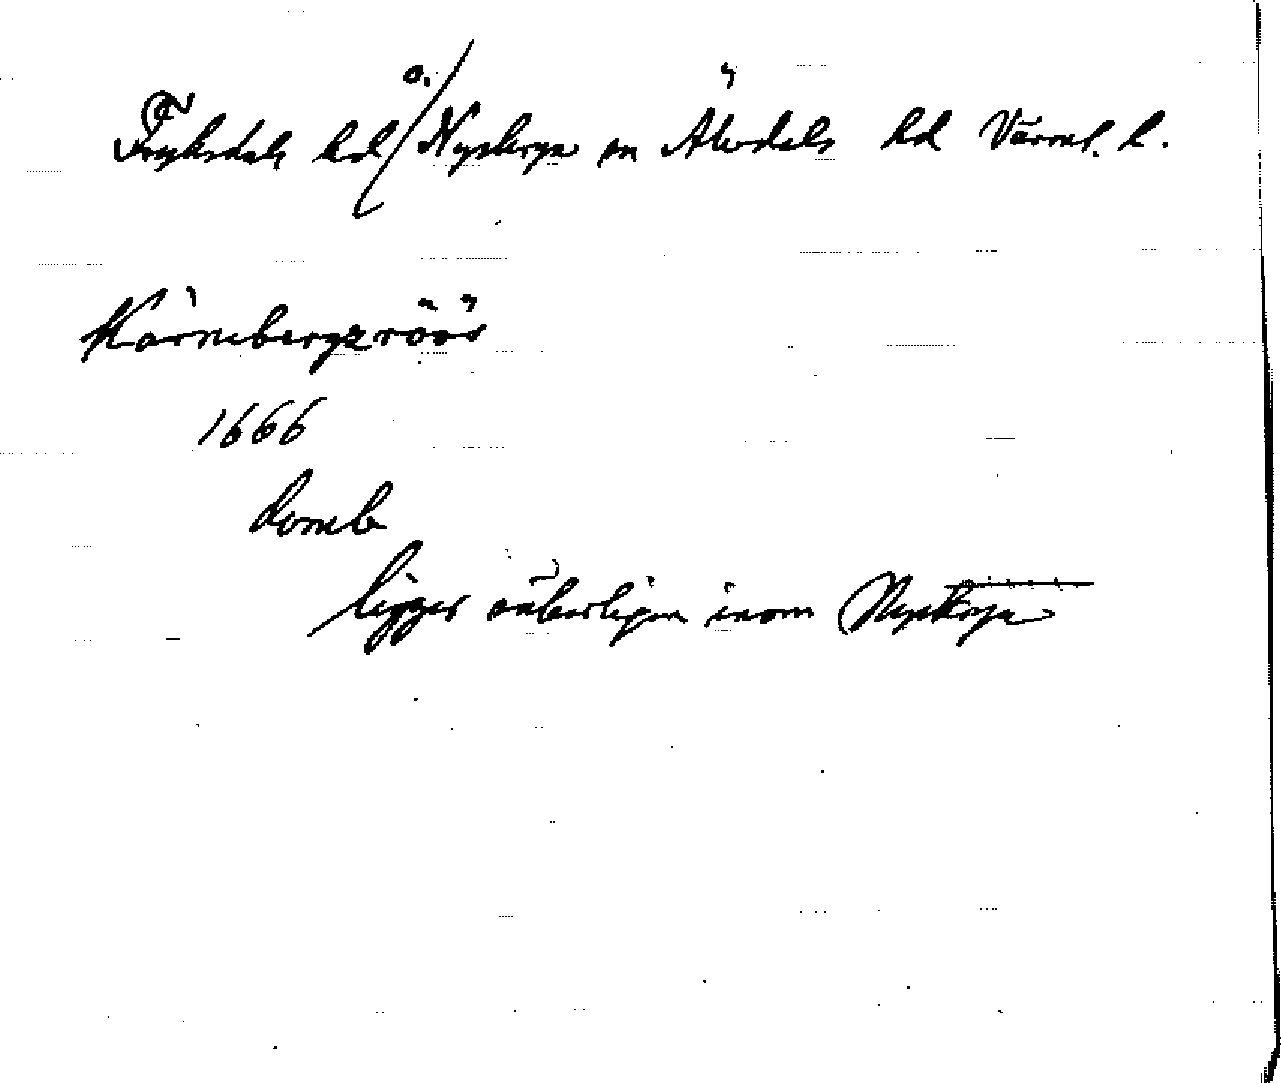 Fryksdals hd ö./Nyskyga sn Älvdals hd Värml. l.
Kårnebergzröös
1666
Domb
ligger otåberligen inom Nyskoga